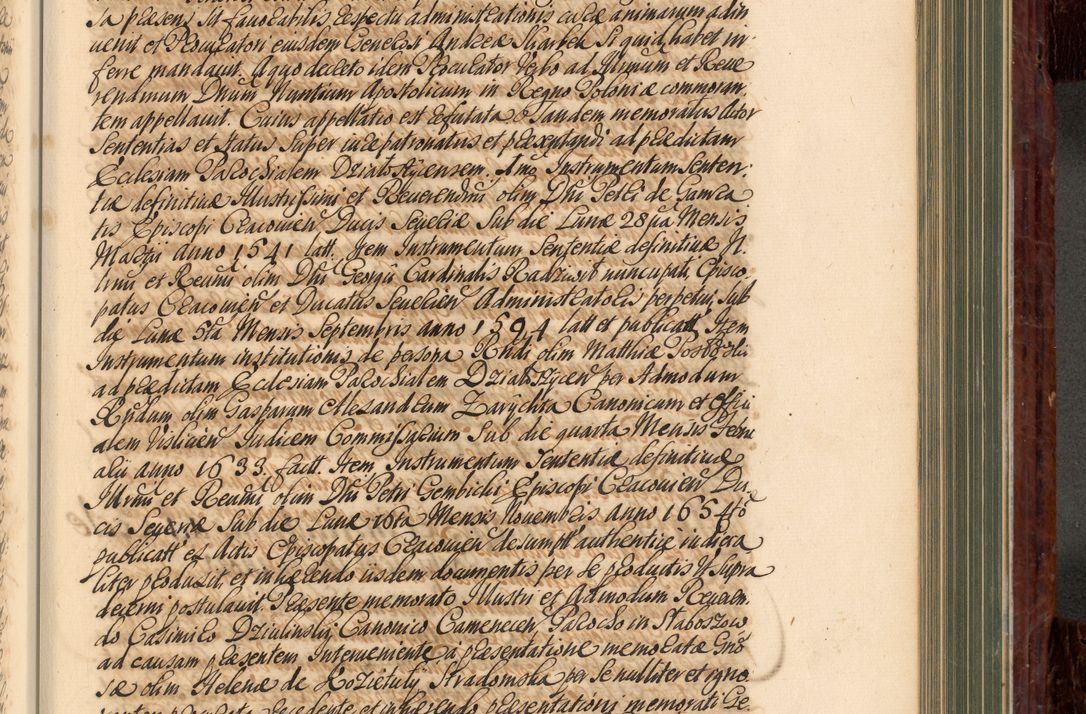 sa præsens sit favorabilis respectu administrationis curæ animarum adin
venit et Procuratori eiusdem Generosi Andreæ Skarbek si quid habet in
ferre mandavit. A quo decreto idem Procurator Verbo ad Illrmum et Reve
rendmum Dnum Nuntium Apostolicum in Regno Poloniæ commoran
tem appellavit. Cuius appellatio est refutata Tandem memoratus Actor
Sententias et status super iure patronatus et præsentandi ad prædictam
Ecclesiam Parochialem Działoszycensem. 1mo Instrumentum Senten
tiæ definitivæ Illustrissimi et Reverendmi olim Dni Petri de Gamra
tis Episcopi Cracovien Ducis Severiæ Sub die Lunæ 28va Mensis
Martii anno 1541 latt. Item Instrumentum Sententiæ definitivæ Il
lrmi et Revmi olim Dni Georgii Cardinalis Radziwił nuncupati Episco
patus Cracovien et Ducatus Severien Administratoris perpetui sub
die Lunæ 5ta Mensis Septembris anno 1594 latt et publicatt, Item
Instrumentum institutionis de persona Rndi olim Matthiæ
ad prædictam Ecclesiam Parochialem Działoszycen per Admodum
Rndum olim Gasparum Alexandrum Zarychta Canonicum et offici
alem Vislicien Judicem Commissarium Sub die quarta Mensis Febru
arii anno 1633. factt. Item Instrumentum Sententiæ definitivæ
Illrmi et Revmi olim Dni Petri Gembicki Episcopi Cracovien Du
cis Severiæ Sub die Lunæ 16ta Mensis Novembris anno 1654to
publicatt et Actis Episcopatus Cracovien desumptt authentice iudicia
liter produxit et inhærendo iisdem documentis per se productis ut supra
decerni postulavit. Præsente memorato Illustri et Admodum Reveren
do Casimiro Dziuliński Canonico Camenecen Parocho in Staboszow
ad causam præsentem Interveniente a præsentatione memoratæ Gnó
sæ olim Helenæ de Kozietuły Stradomska per se nulliter et igno
præsentationi memorati Ge